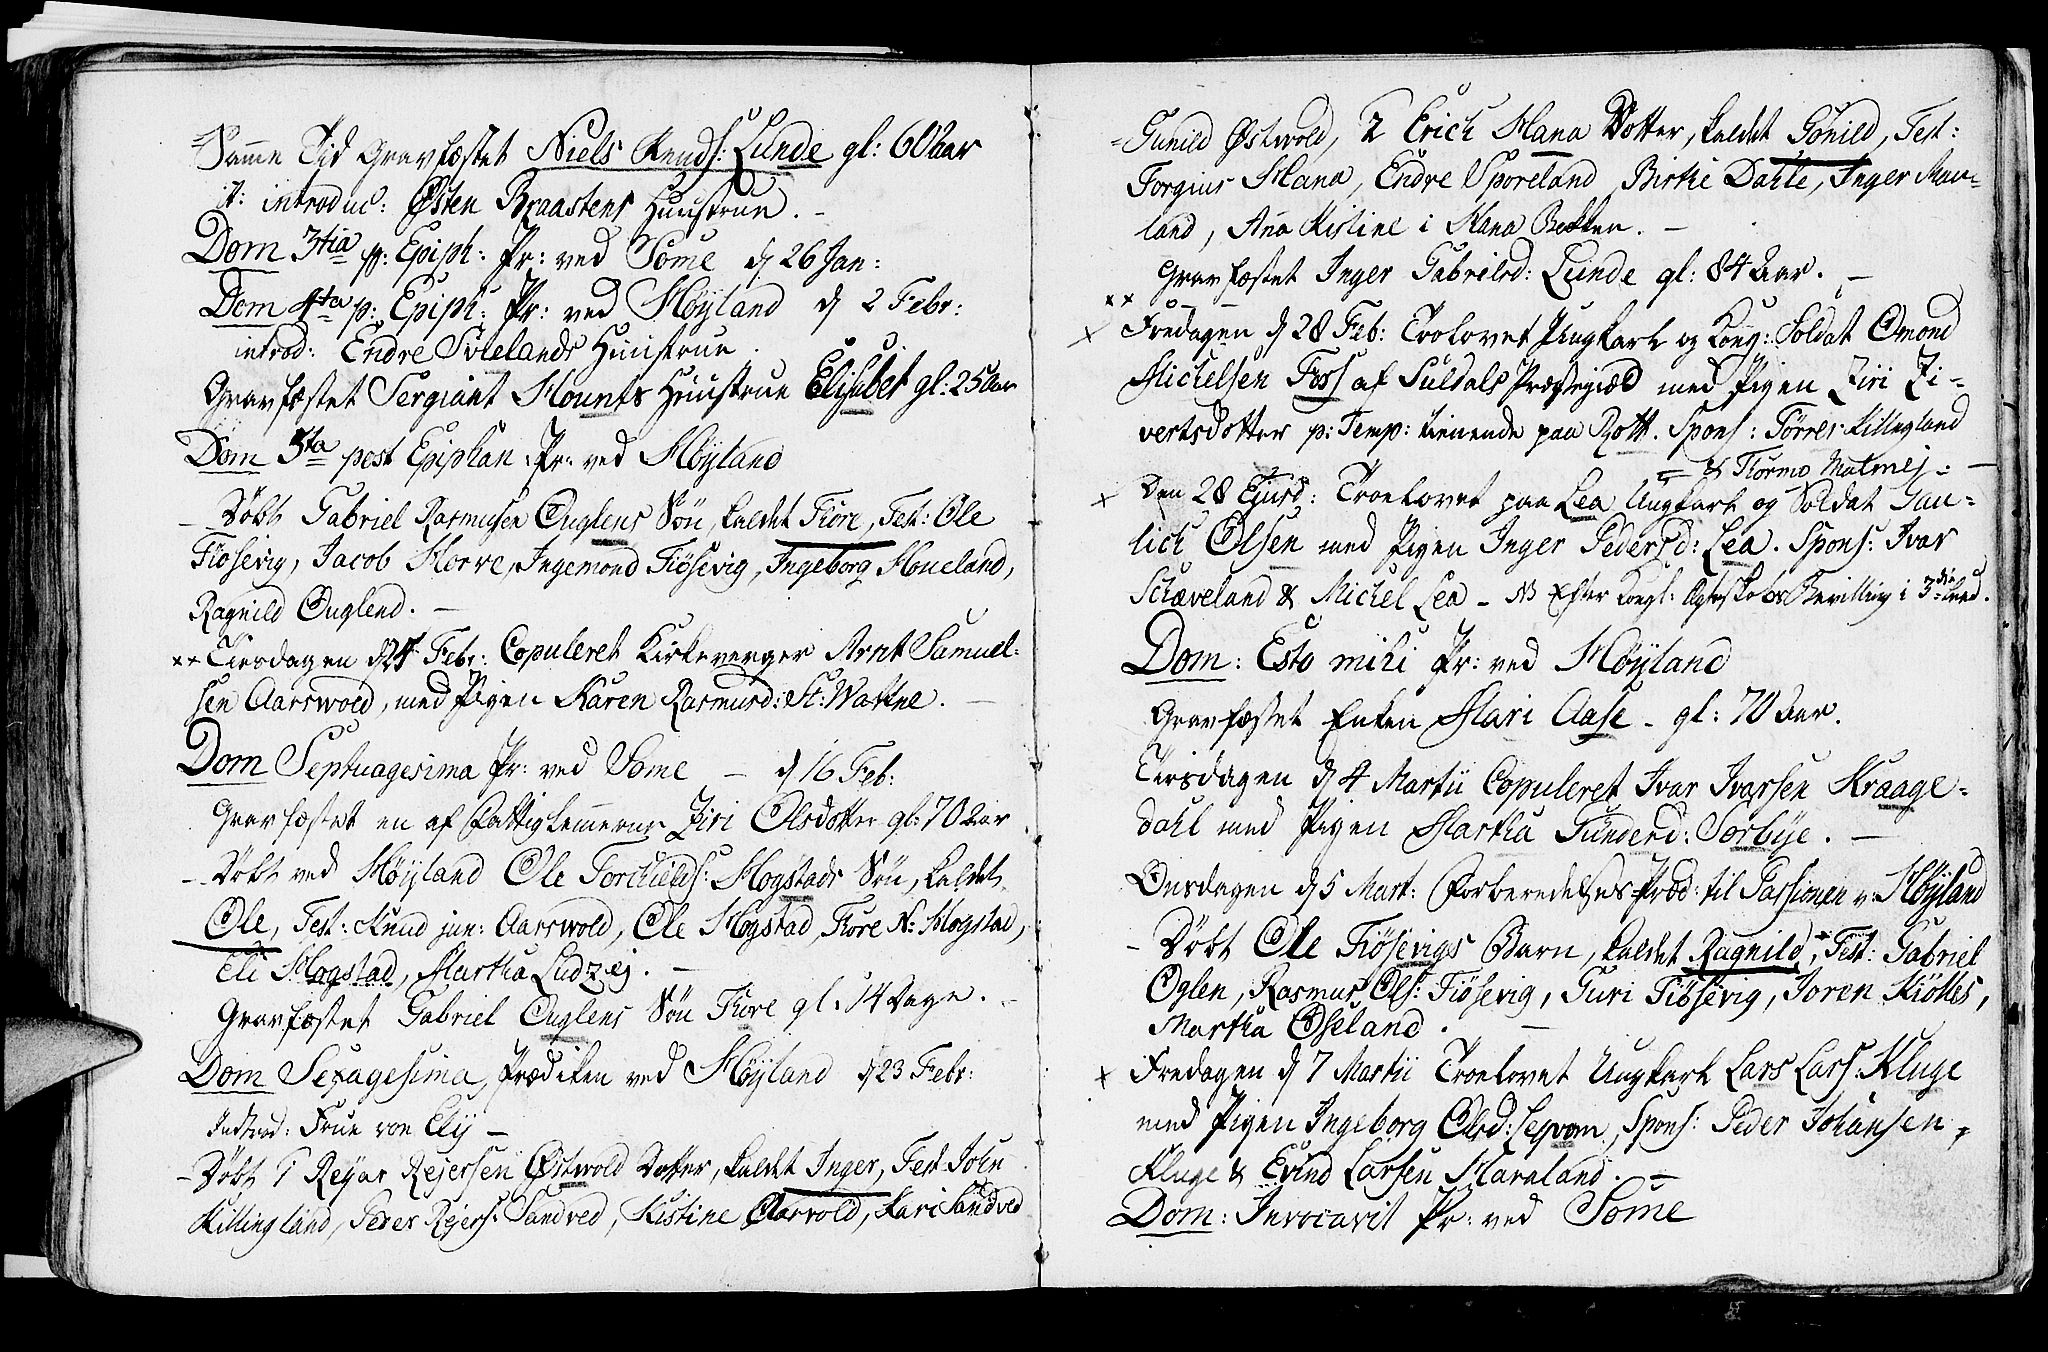 Samme Tid Gravfæstet Niels Knuds: Lunde gl: 60 Aar
it: introduc: Østen Braastens Huustrue. -
Dom 3tia p: Epiph: Pr: ved Some d 26 Jan:
Dom 4ta p: Epiph: Pr: ved Høyland d 2 Febr:
introd: Endre Svielands Huustrue.
Gravfæstet Sergiant Mounts Huustrue Elisabet gl: 25 Aar
Dom 5ta post Epiphan: Pr: ved Høyland
- Døbt Gabriel Rasmusen Ouglens Søn, kaldet Tore, Test: Ole
Fiøsevig, Jacob Horve, Ingemond Fiøsevig, Ingeborg Hoveland,
Ragnild Ouglend. -
xx Tirsdagen d Febr: Copuleret Kirkeverger Arnt Samuel-
sen Aarswold, med Pigen Karen Rasmusd: St: Watne. -
Dom Septuagesima Pr: ved Some - d 16 Feb:
Gravfæstet en af Fattiglemmerne Ziri Olsdotter gl: 70 Aar
- Døbt ved Høyland Ole Torchilds: Hogstads Søn, kaldet
Ole, Test: Knud jun: Aarswold, Ole Hogstad, Tore N: Hogstad,
Eli Hogstad, Martha Ludzej. -
Gravfæstet Gabriel Ouglens Søn Tore gl: 14 Dage. -
Dom Sexagesima, Prædiken ved Høyland d 23 Febr:
Introd: Frue von Ely -
- Døbt 1 Reyar Rejersen Østwold Dotter, kaldet Inger, Test: John
Killingland, Peder Rejers: Sandved, Kistine Aarvold, Kari Sandved
Gunild Østwold, 2 Erich Hana Dotter, kaldet Gonild, Test:
Torgius Hana, Endre Sporeland Birthe Dahle, Inger Mau-
land, Ana Kistine i Hana Bekken. -
Gravfæstet Inger Gabrielsd: Lunde gl: 84 Aar. -
xx
x Fredagen d 28 Feb: Troelovet Ungkarl og Kong: Soldat Omond
Michelsen Foss af Suldals Præstegield med Pigen Ziri Zi-
vertsdotter p: Temp: tienende paa Rott. Spons: Tørres Killingland
& Tormo Malmej: -
x Den 28 Ejusd: Troelovet paa Lea Ungkarl og Soldat Gun-
lich Olsen med Pigen Inger Pedersd: Lea. Spons: Ivar
Schæveland & Michel Lea - NB Efter Kongl: Ægteskabs Bevilling i 3die Leed.
Dom: Esto mihi Pr: ved Høyland
Gravfæstet Enken Mari Aase - gl: 70 Aar.
Tirsdagen d 4 Martii Copuleret Ivar Ivarsen Kraage-
dahl med Pigen Martha Gunderd: Sørbye. -
Onsdagen d 5 Mart: Forberedelses Præd: til Passionen v: Høyland
- Døbt Ole Fiøsevigs Barn, kaldet Ragnild, Test: Gabriel
Oglen, Rasmus Ols: Fiøsevig, Guri Fiøsevig, Joren Kiølles,
Martha Oseland. -
x Fredagen d 7 Martii Troelovet Ungkarl Lars Lars: Kluge
med Pigen Ingeborg Olsd: , Spons: Peder Johansen
Kluge & Evind Larsen Haraland. -
Dom: Invocavit Pr: ved Some